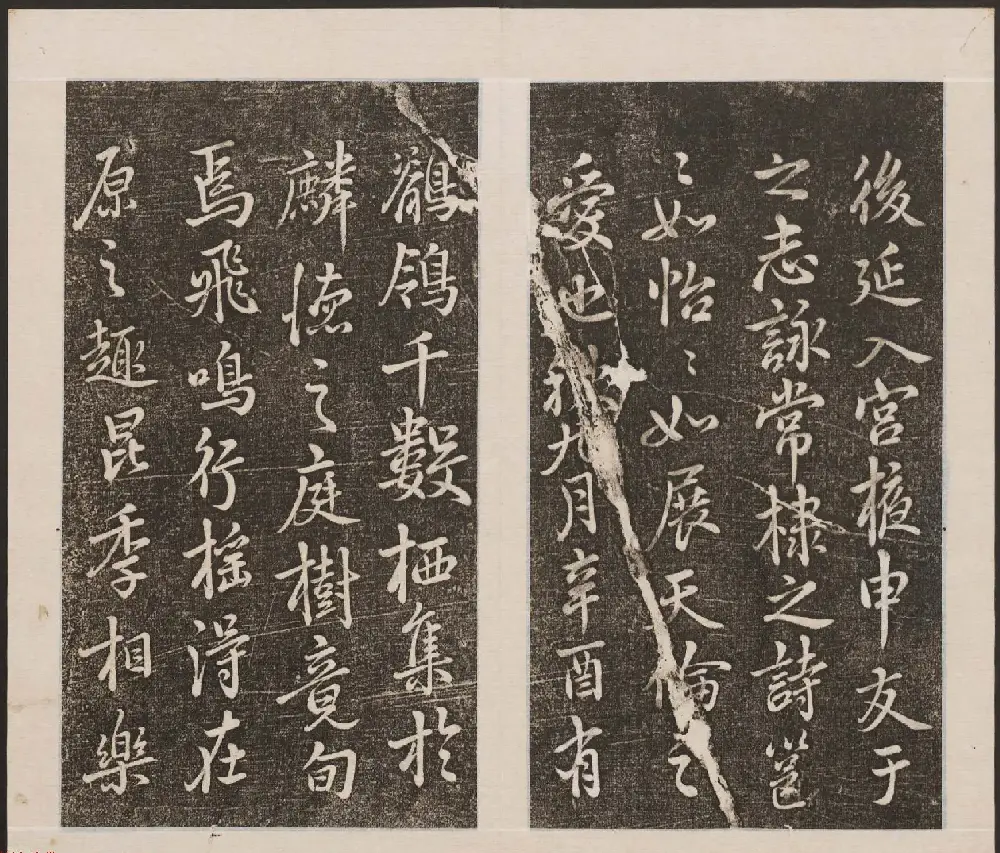 後延入宮掖申友于
之志詠常棣之詩邕
〻如怡〻如展天倫之
愛也秋九月辛酉有
鶺鴒千數栖集於
麟德之庭樹竟旬
焉飛鳴行搖得在
原之趣昆季相樂